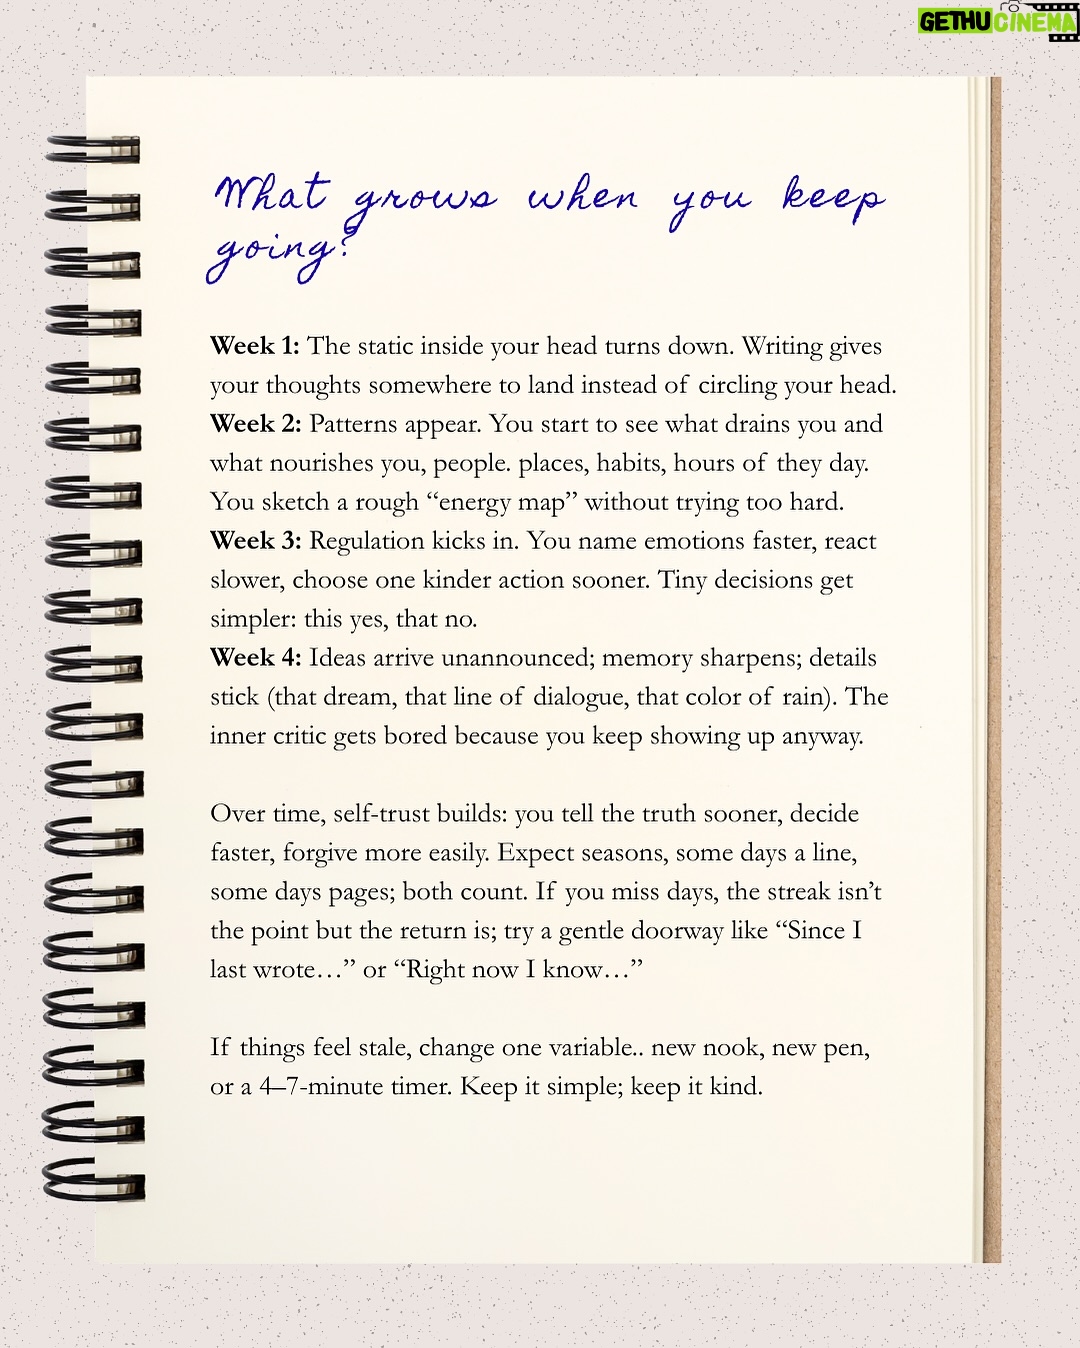 GETHUCINEMA
What grows when you keep
going?
Week 1: The static inside your head turns down. Writing gives
your thoughts somewhere to land instead of circling your head.
Week 2: Patterns appear. You start to see what drains you and
what nourishes you, people. places, habits, hours of they day.
You sketch a rough “energy map” without trying too hard.
Week 3: Regulation kicks in. You name emotions faster, react
slower, choose one kinder action sooner. Tiny decisions get
simpler: this yes, that no.
Week 4: Ideas arrive unannounced; memory sharpens; details
stick (that dream, that line of dialogue, that color of rain). The
inner critic gets bored because you keep showing up anyway.
Over time, self-trust builds: you tell the truth sooner, decide
faster, forgive more easily. Expect seasons, some days a line,
some days pages; both count. If you miss days, the streak isn’t
the point but the return is; try a gentle doorway like “Since I
last wrote…” or “Right now I know…”
If things feel stale, change one variable.. new nook, new pen,
or a 4–7-minute timer. Keep it simple; keep it kind.